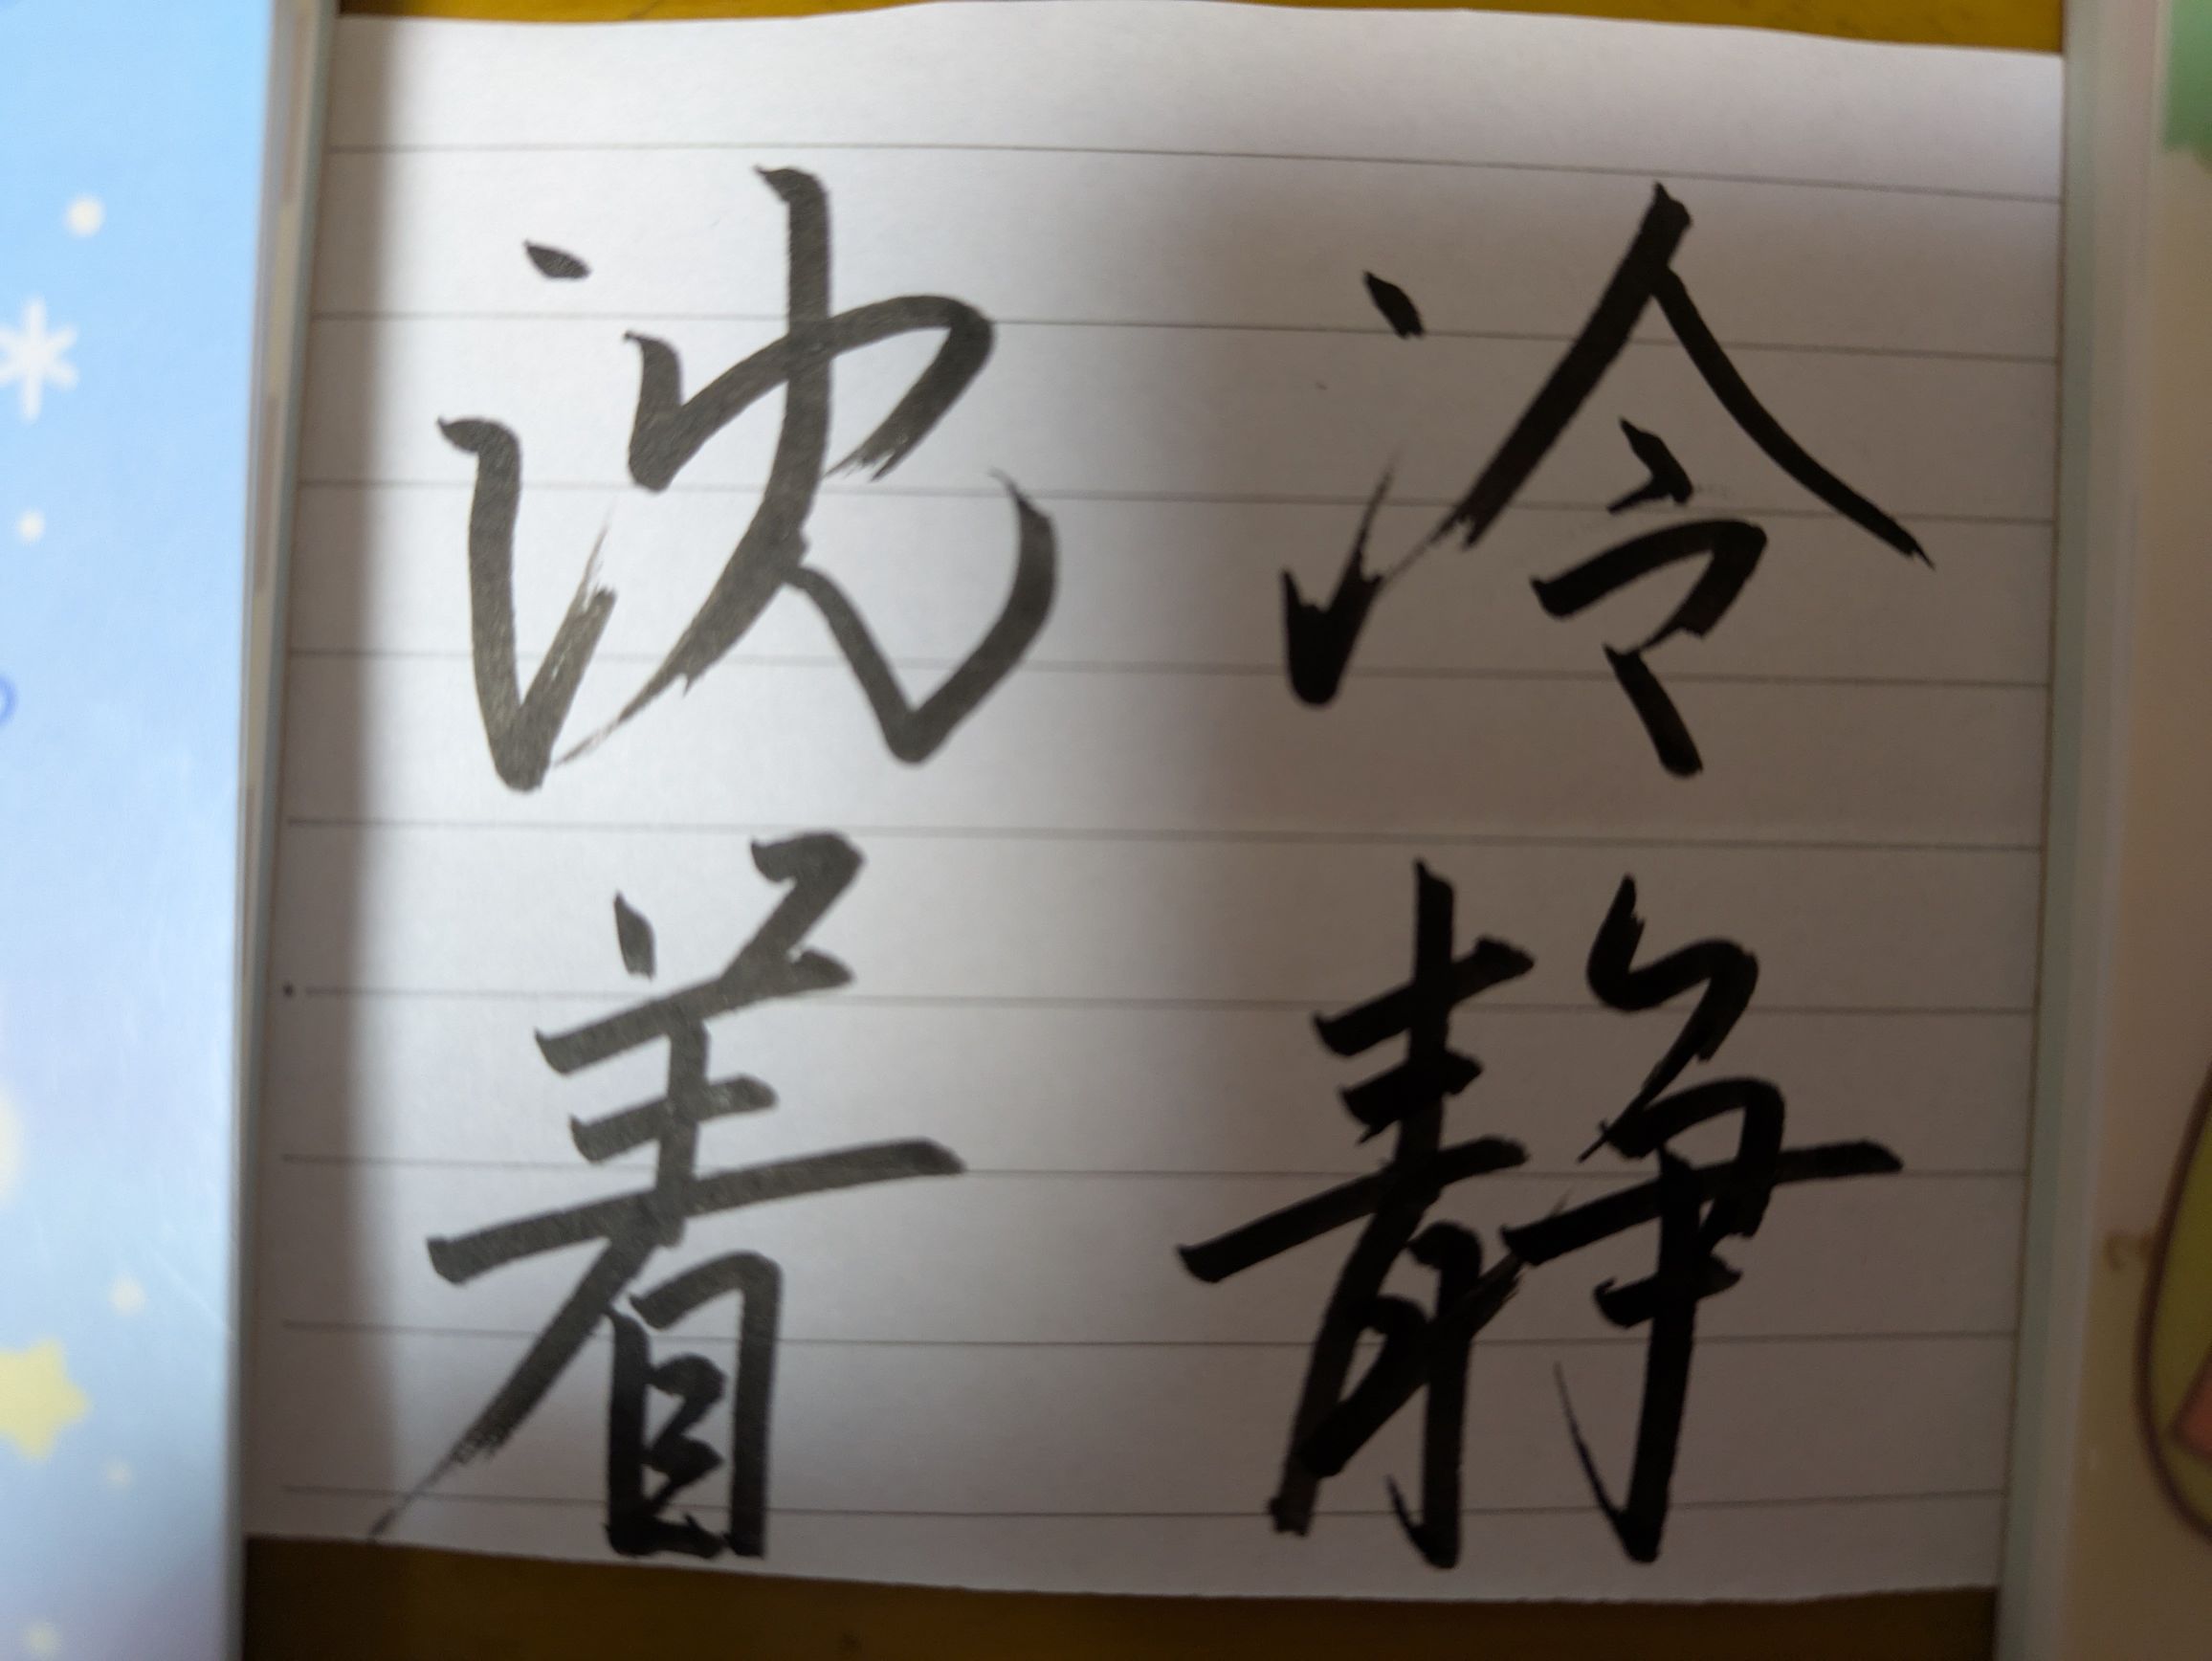 冷静
沈着